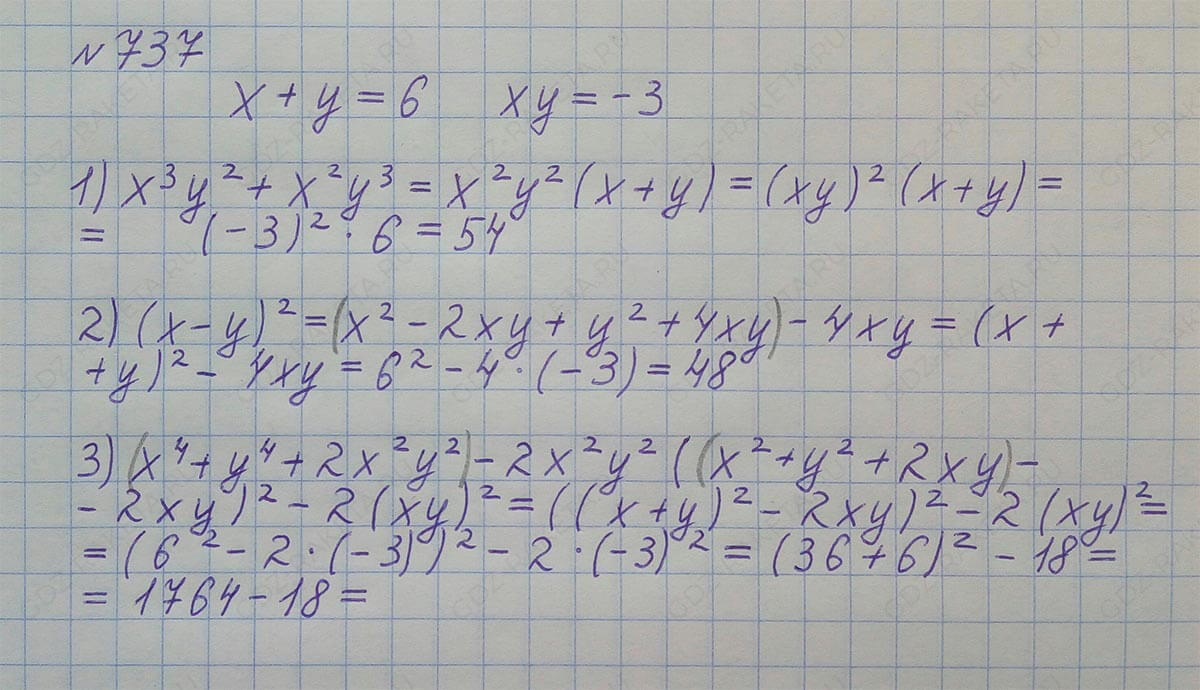 №737
x + y = 6   xy = -3
1) x³y² + x²y³ = x²y² (x + y) = (xy)² (x + y) =
= (-3)² · 6 = 54
2) (x - y)² = (x² - 2xy + y² + 4xy) - 4xy = (x +
+ y)² - 4xy = 6² - 4 · (-3) = 48
3) (x⁴ + y⁴ + 2x²y²) - 2x²y² ((x² + y² + 2xy) -
- 2xy)² - 2(xy)² = ((x + y)² - 2xy)² - 2(xy)² =
= (6² - 2 · (-3))² - 2 · (-3)² = (36 + 6)² - 18 =
= 1764 - 18 =